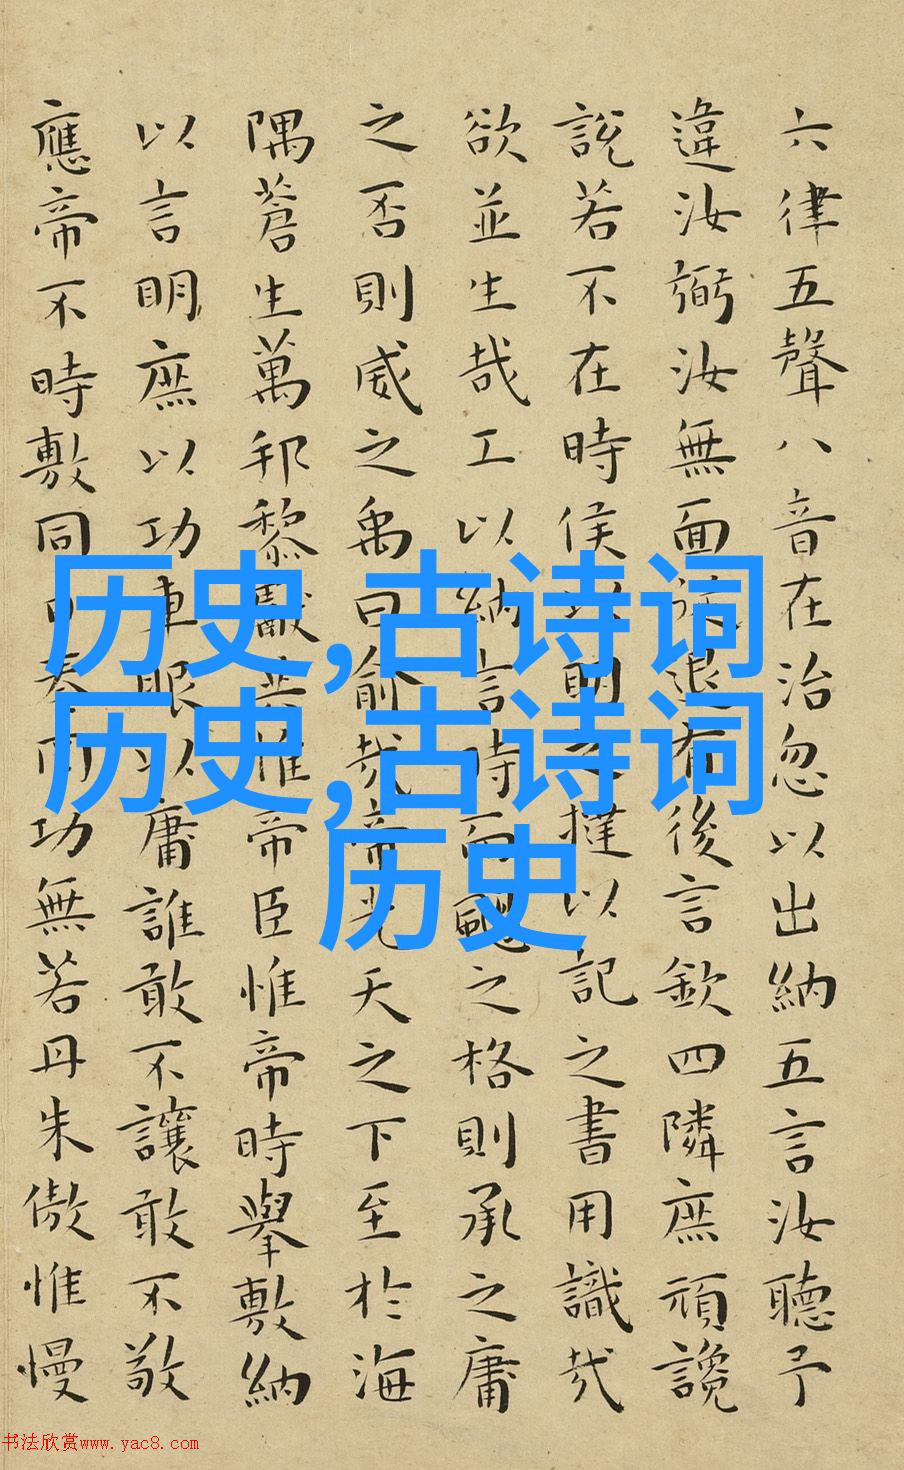 六律五聲八音在治忽以出納五言汝聽予
違汝弼汝無面從退有後言欽四隣庶頑讒
說若不在時侯以明之撻以記之書用識哉
欲並生哉工以納言時而颺之格則承之庸
之否則威之禹曰俞哉帝光天之下至於海
隅蒼生萬邦黎獻共惟帝臣惟帝時舉敷納
以言明庶以功車服以庸誰敢不讓敢不敬
應帝不時敷同日奏罔功無若丹朱傲惟慢
历史,古诗词
历史,古诗词
历史
书法欣赏www.yac8.com